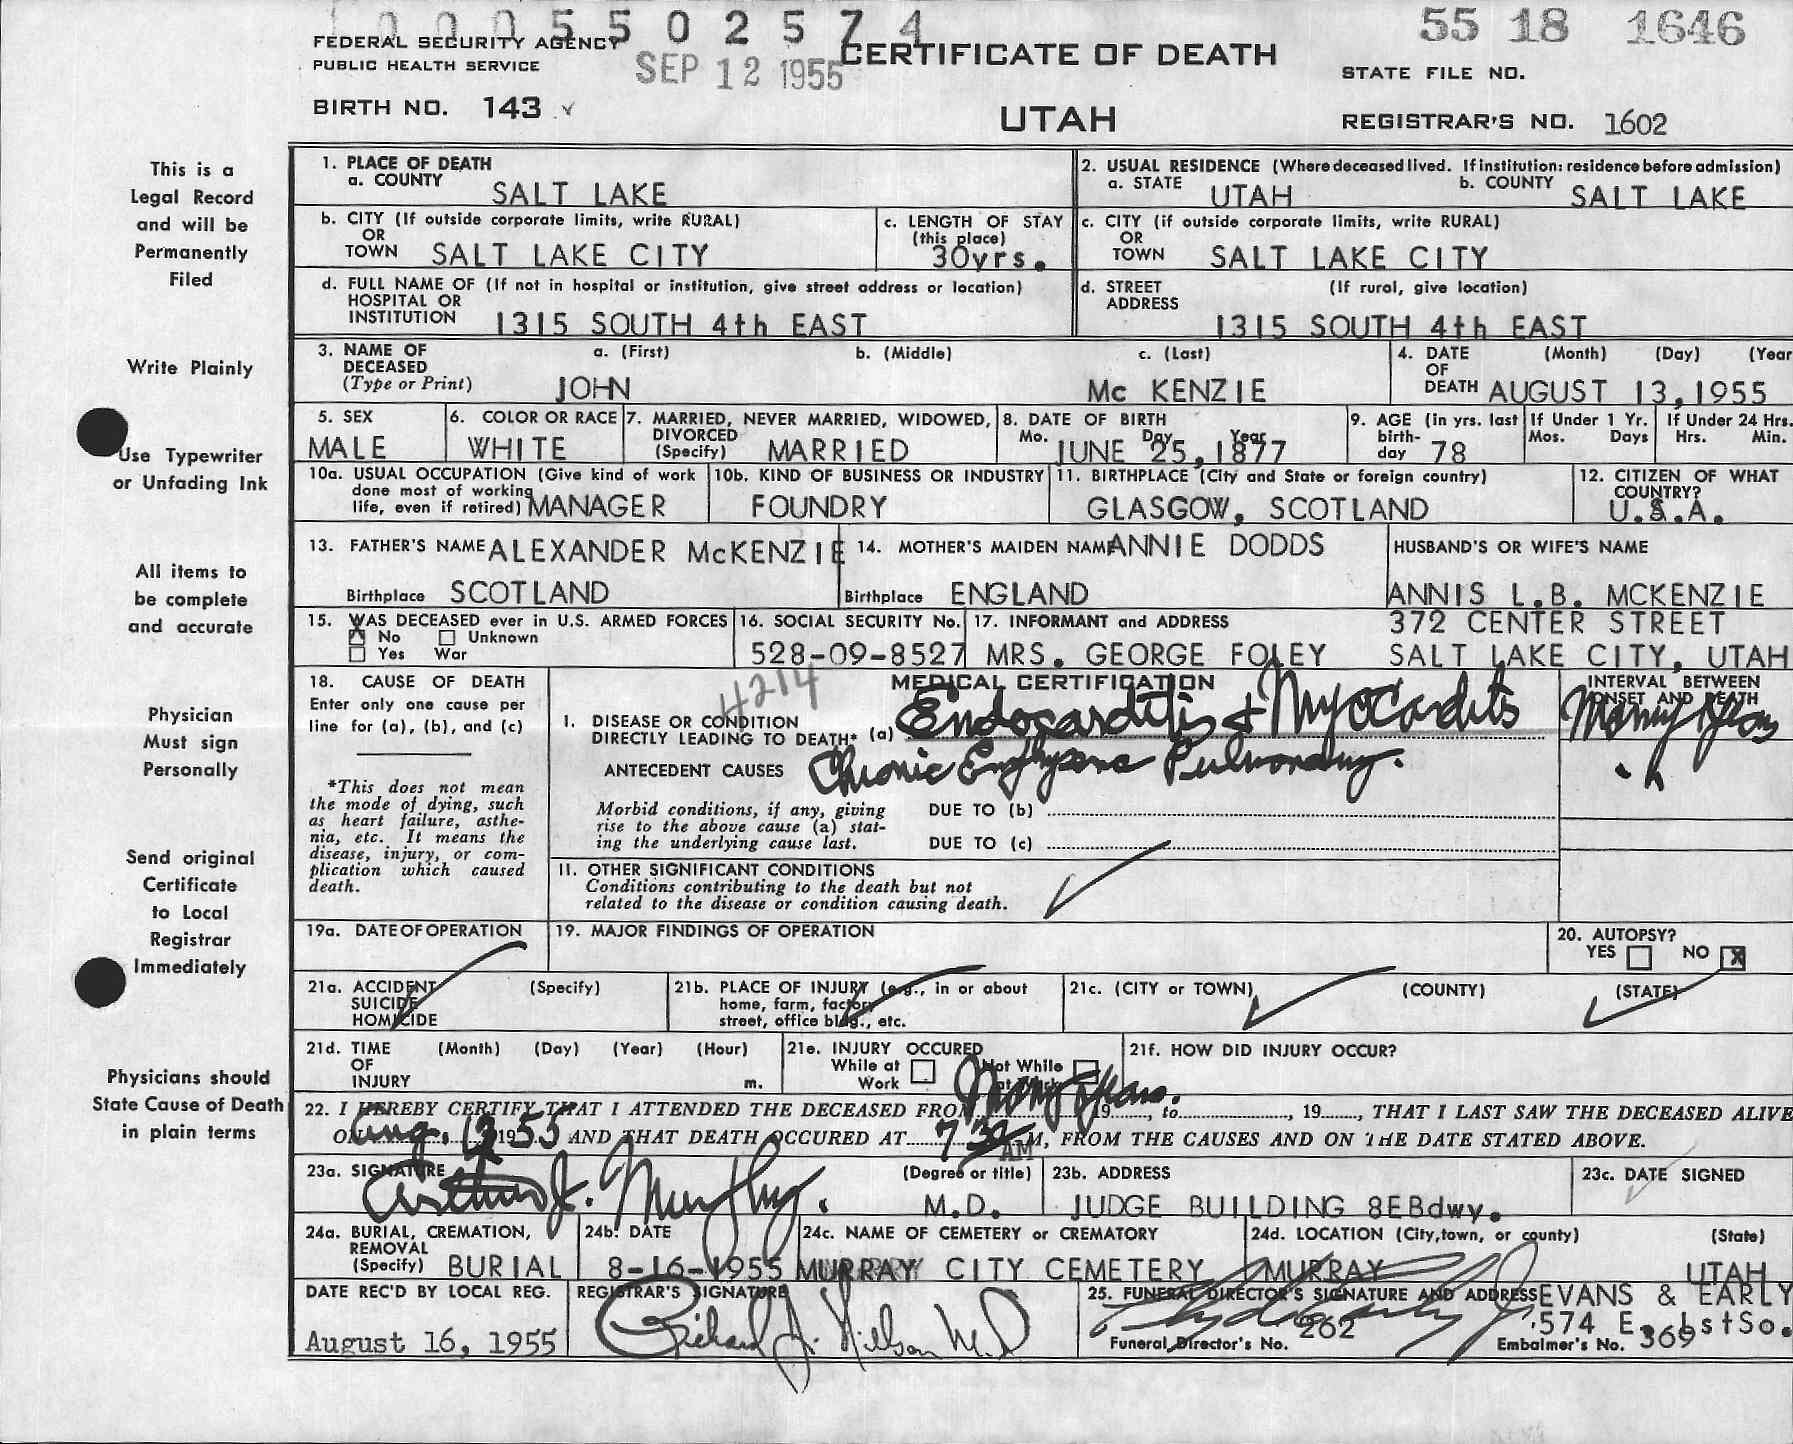 1000550 2574
55 18 1646
FEDERAL SECURITY AGENCY
PUBLIC HEALTH SERVICE
SEP 12 1955
CERTIFICATE OF DEATH
STATE FILE NO.
BIRTH NO. 143
UTAH
REGISTRAR'S NO. 1602
This is a
Legal Record
and will be
Permanently
Filed
Write Plainly
Use Typewriter
or Unfading Ink
All items to
be complete
and accurate
Physician
Must sign
Personally
Send original
Certificate
to Local
Registrar
Immediately
Physicians should
State Cause of Death
in plain terms
1. PLACE OF DEATH
a. COUNTY SALT LAKE
2. USUAL RESIDENCE (Where deceased lived. If institution: residence before admission)
a. STATE UTAH b. COUNTY SALT LAKE
b. CITY (If outside corporate limits, write RURAL)
OR
TOWN SALT LAKE CITY
c. LENGTH OF STAY
(this place)
30yrs.
c. CITY (if outside corporate limits, write RURAL)
OR
TOWN SALT LAKE CITY
d. FULL NAME OF (If not in hospital or institution, give street address or location)
HOSPITAL OR
INSTITUTION 1315 SOUTH 4th EAST
d. STREET (If rural, give location)
ADDRESS
1315 SOUTH 4th EAST
3. NAME OF a. (First) b. (Middle) c. (Last)
DECEASED
(Type or Print) JOHN Mc KENZIE
4. DATE (Month) (Day) (Year
OF
DEATH AUGUST 13, 1955
5. SEX
MALE
6. COLOR OR RACE
WHITE
7. MARRIED, NEVER MARRIED, WIDOWED,
DIVORCED
(Specify) MARRIED
8. DATE OF BIRTH
Mo. Day Year
JUNE 25, 1877
9. AGE (in yrs. last
birth-
day 78
If Under 1 Yr.
Mos. Days
If Under 24 Hrs.
Hrs. Min.
10a. USUAL OCCUPATION (Give kind of work
done most of working
life, even if retired) MANAGER
10b. KIND OF BUSINESS OR INDUSTRY
FOUNDRY
11. BIRTHPLACE (City and State or foreign country)
GLASGOW, SCOTLAND
12. CITIZEN OF WHAT
COUNTRY?
U.S.A.
13. FATHER'S NAME ALEXANDER McKENZIE
Birthplace SCOTLAND
14. MOTHER'S MAIDEN NAME ANNIE DODDS
Birthplace ENGLAND
HUSBAND'S OR WIFE'S NAME
ANNIS L.B. MCKENZIE
15. WAS DECEASED ever in U.S. ARMED FORCES
X No Unknown
Yes War
16. SOCIAL SECURITY No.
528-09-8527
17. INFORMANT and ADDRESS 372 CENTER STREET
MRS. GEORGE FOLEY SALT LAKE CITY, UTAH
18. CAUSE OF DEATH
Enter only one cause per
line for (a), (b), and (c)
*This does not mean
the mode of dying, such
as heart failure, asthe-
nia, etc. It means the
disease, injury, or com-
plication which caused
death.
4214
MEDICAL CERTIFICATION
INTERVAL BETWEEN
ONSET AND DEATH
I. DISEASE OR CONDITION
DIRECTLY LEADING TO DEATH* (a) Endocarditis & Myocardits Many Years
ANTECEDENT CAUSES Chronic Emphysema Pulmonary.
Morbid conditions, if any, giving
rise to the above cause (a) stat-
ing the underlying cause last.
DUE TO (b)
DUE TO (c)
11. OTHER SIGNIFICANT CONDITIONS
Conditions contributing to the death but not
related to the disease or condition causing death.
19a. DATE OF OPERATION
19. MAJOR FINDINGS OF OPERATION
20. AUTOPSY?
YES NO X
21a. ACCIDENT (Specify)
SUICIDE
HOMICIDE
21b. PLACE OF INJURY (e.g., in or about
home, farm, factory,
street, office bldg., etc.
21c. (CITY or TOWN) (COUNTY) (STATE)
21d. TIME (Month) (Day) (Year) (Hour)
OF
INJURY m.
21e. INJURY OCCURED
While at Not While
Work at Work
21f. HOW DID INJURY OCCUR?
22. I HEREBY CERTIFY THAT I ATTENDED THE DECEASED FROM Many Years. 19, to, 19, THAT I LAST SAW THE DECEASED ALIVE
ON Aug. 12 1955 AND THAT DEATH OCCURED AT 7 30 AM, FROM THE CAUSES AND ON THE DATE STATED ABOVE.
23a. SIGNATURE (Degree or title)
Arthur J. Murphy. M.D.
23b. ADDRESS
JUDGE BUILDING 8EBdwy.
23c. DATE SIGNED
24a. BURIAL, CREMATION,
REMOVAL
(Specify) BURIAL
24b. DATE
8-16-1955
24c. NAME OF CEMETERY or CREMATORY
MURRAY CITY CEMETERY
24d. LOCATION (City, town, or county) (State)
MURRAY UTAH
DATE REC'D BY LOCAL REG.
August 16, 1955
REGISTRAR'S SIGNATURE
Richard J. Nillson M.D
25. FUNERAL DIRECTOR'S SIGNATURE AND ADDRESS EVANS & EARLY
574 E. 1stSo.
Funeral Director's No. 262
Embalmer's No. 369